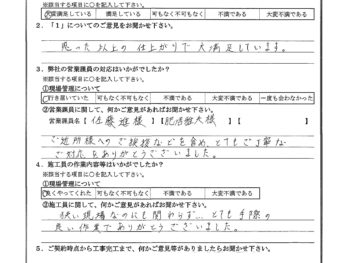 ※該当する項目に○を記入して下さい。
大変満足している 満足している 可もなく不可もなく 不満である 大変不満である
2．「1」についてのご意見をお聞かせ下さい。
思った以上の仕上がりで大満足しています。
3．弊社の営業課員の対応はいかがでしたか？
※該当する項目に○を記入して下さい。
①現場管理について
行き届いていた 可もなく不可もなく 不満である 大変不満である 一度も会わなかった
②営業課員に関して、何かご意見があればお聞かせ下さい。
営業課員名【 佐藤 様 】【 様 】【 】
ご近所様へのご挨拶などを含め、とても丁寧な
ご対応をありがとうございました。
4．施工員の作業内容等はいかがでしたか？
※該当する項目に○を記入して下さい。
①現場管理について
良くやってくれた 可もなく不可もなく 不満である 大変不満である
②施工員に関して、何かご意見があればお聞かせ下さい。
狭い現場なのにも関わらず… とても手際の
良い作業でありがとうございました。
5．ご契約時点から工事完工まで、何かご意見等がありましたらお聞かせ下さい。